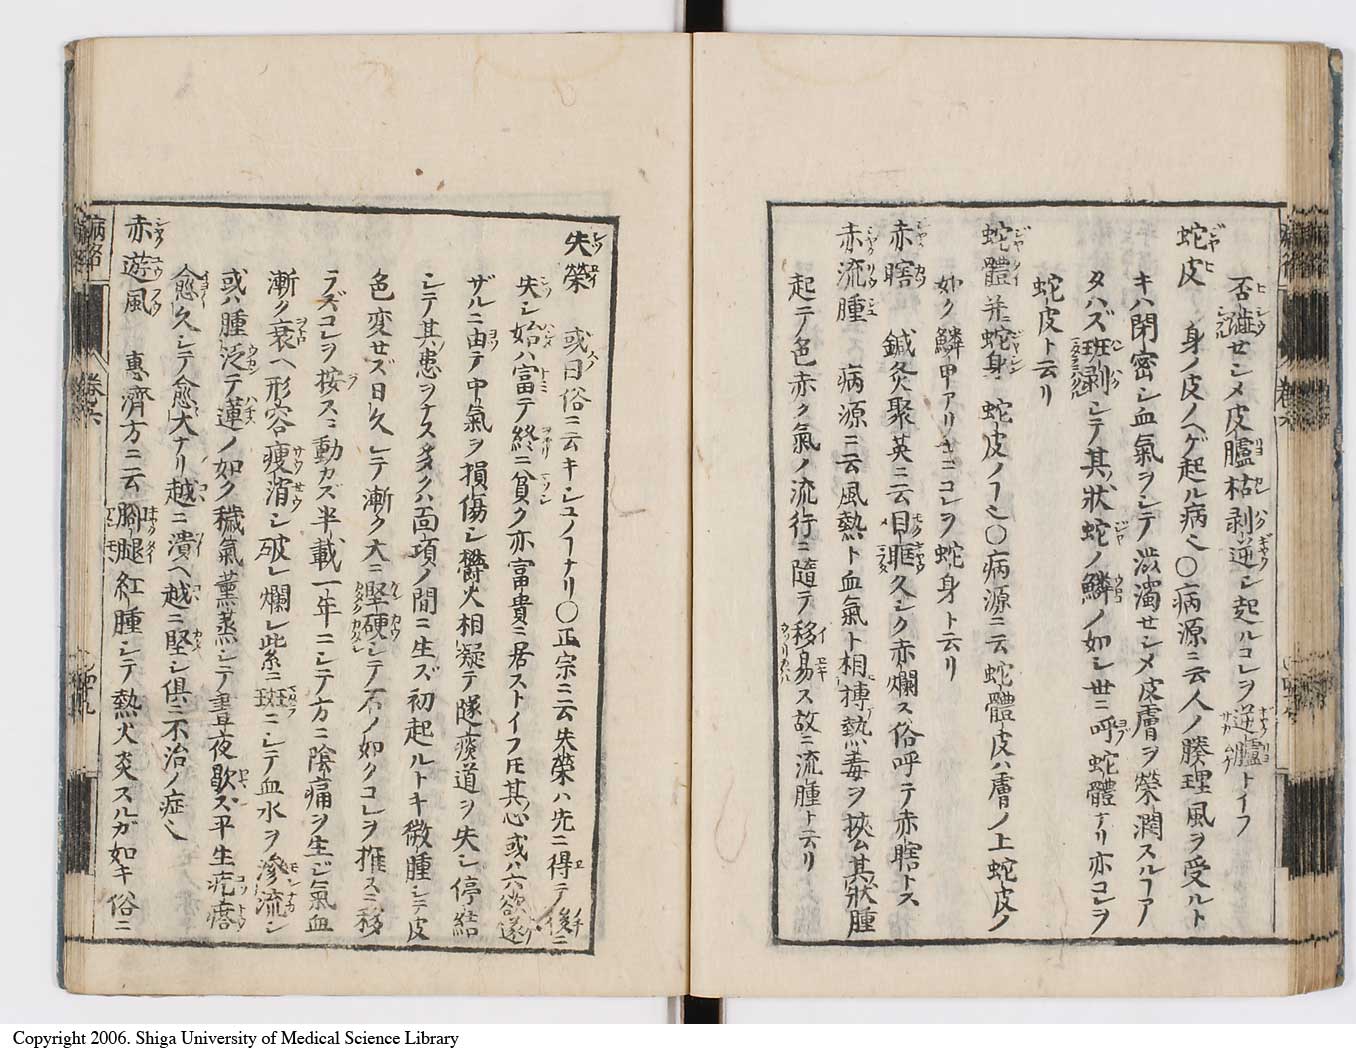 否澁セシメ皮臚枯剥逆シ起ルコレヲ逆臚トイフ
蛇皮 身ノ皮ノヘゲ起ル病也〇病源ニ云人ノ腠理風ヲ受ルト
キハ閉密シ血氣ヲシテ渋濁セシメ皮膚ヲ榮潤スルヿア
タハズ斑剥シテ其狀蛇ノ鱗ノ如シ世ニ呼蛇體ナリ亦コレヲ
蛇皮ト云リ
蛇體 并蛇身 蛇皮ノヿ也〇病源ニ云蛇體皮ハ膚ノ上蛇皮ノ
如ク鱗甲アリ コレヲ蛇身ト云リ
赤瞎 鍼灸聚英ニ云目眶久シク赤爛ス俗呼テ赤瞎トス
赤流腫 病源ニ云風熱ト血氣ト相摶熱毒ヲ挾ム其狀腫
起ニテ色赤ク氣ノ流行ニ隨テ移易ス故ニ流腫ト云リ
失榮 或曰俗ニ云キシユノヿナリ〇正宗ニ云失榮ハ先ニ得テ後ニ
失シ始ハ富テ終ニ貧ク亦富貴ニ居ストイフトモ其心或ハ六欲遂
ザルニ由テ中氣ヲ損傷シ欝火相凝テ隧痰道ヲ失シ停結
シテ其患ヲナス多クハ面項ノ間ニ生ズ初起ルトキ微腫シテ皮
色変セズ日久シテ漸ク大ニ堅硬シテ石ノ如クコレヲ推スニ移
ラズコレヲ按スニ動カズ半載一年ニシテ方ニ陰痛ヲ生ジ氣血
漸ク衰ヘ形容痩消シ破レ爛シ紫ニ斑ニシテ血水ヲ滲流シ
或ハ腫泛テ蓮ノ如ク穢氣薰蒸シテ晝夜歇ズ平生疙瘩
愈久シテ愈大ナリ越ニ潰ヘ越ニ堅シ俱ニ不治ノ症也
赤遊風 惠濟方ニ云脚腿紅腫シテ熱火炎スルガ如キ俗ニ
病名
卷六
Copyright 2006. Shiga University of Medical Science Library